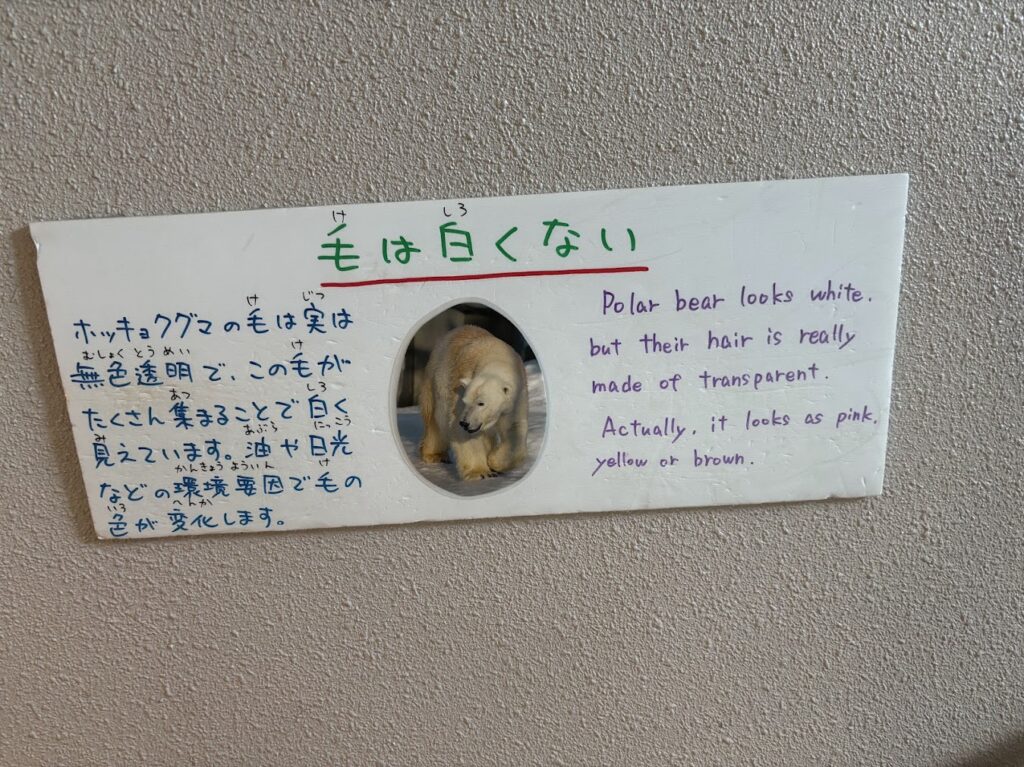 毛は白くない
ホッキョクグマの毛は実は
無色透明で、この毛が
たくさん集まることで白く
見えています。油や日光
などの環境要因で毛の
色が変化します。
Polar bear looks white.
but their hair is really
made of transparent.
Actually, it looks as pink,
yellow or brown.